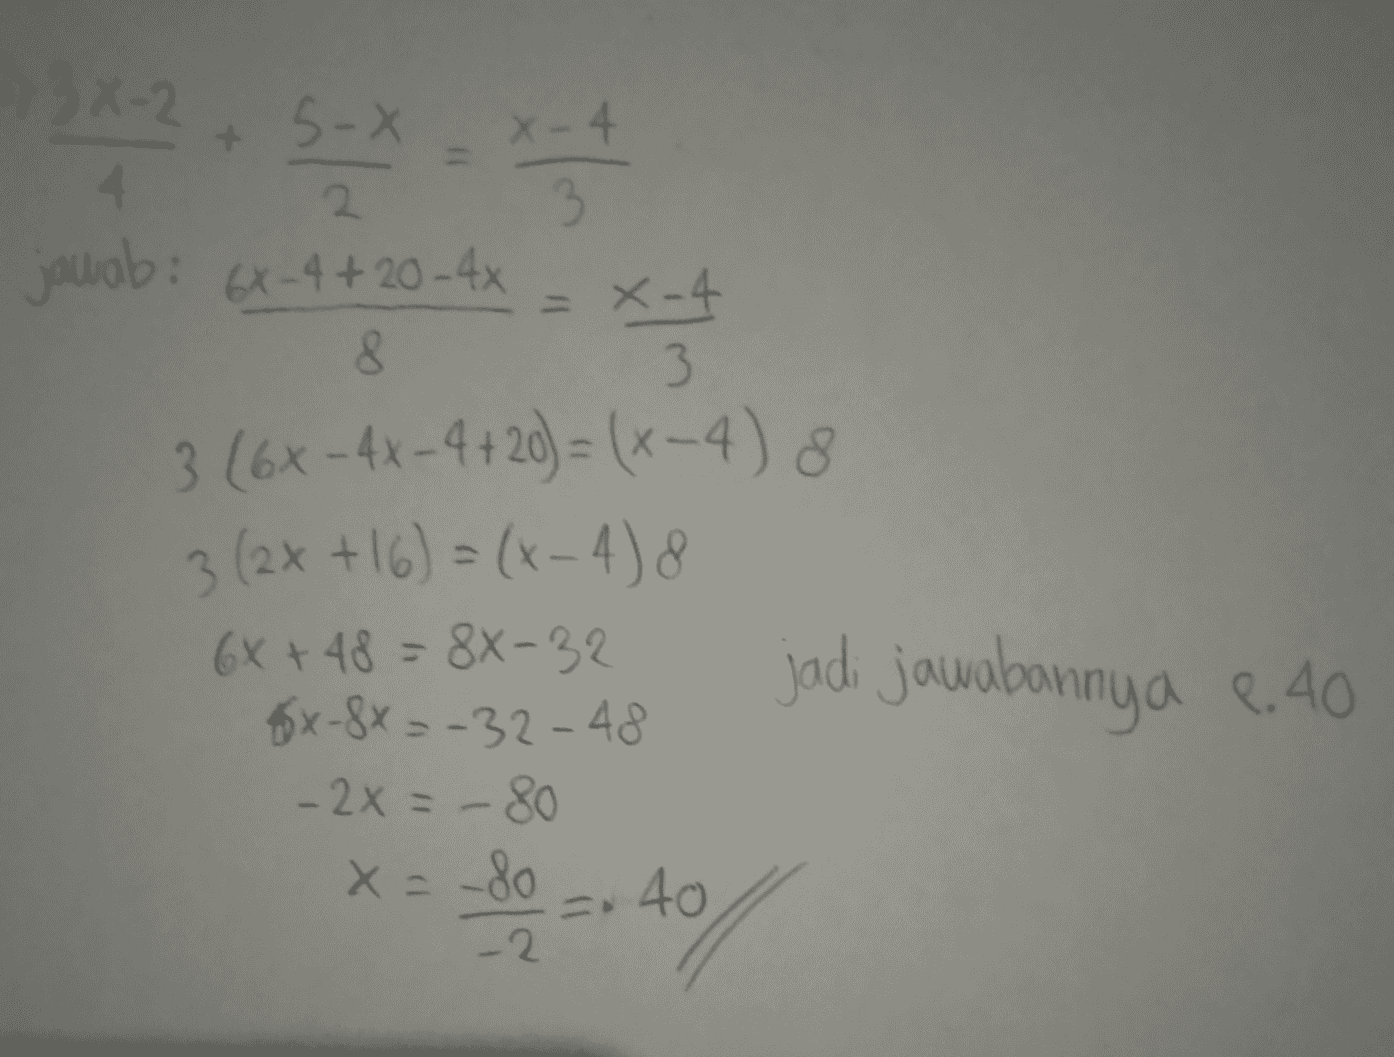 3x-2/4 + 5-x/2 = x-4/3
jawab: 6x-4+20-4x/8 = x-4/3
3 (6x-4x-4+20) = (x-4) 8
3 (2x+16) = (x-4) 8
6x+48 = 8x-32
6x-8x = -32-48
jadi jawabannya e.40
-2x = -80
x = -80/-2 = 40